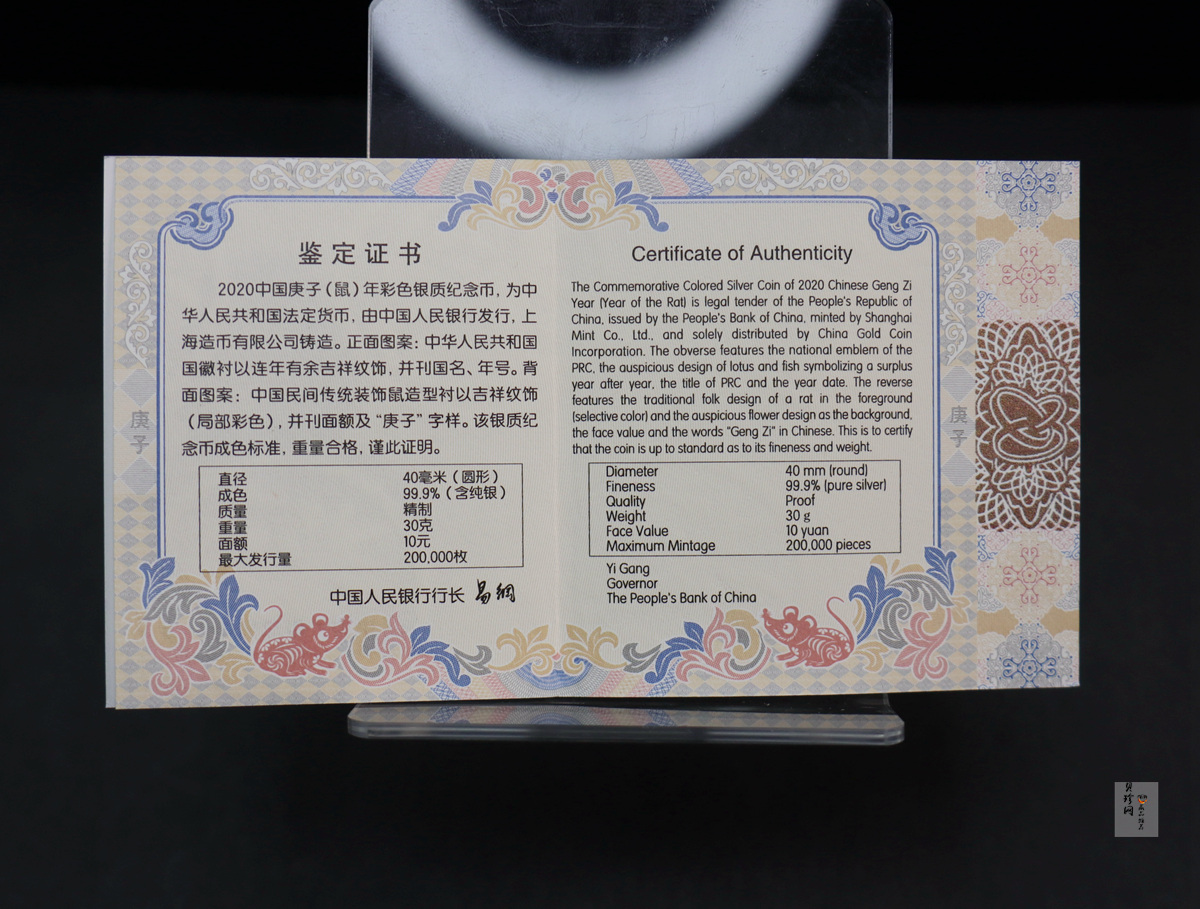 鉴定证书
2020中国庚子（鼠）年彩色银质纪念币，为中
华人民共和国法定货币，由中国人民银行发行，上
海造币有限公司铸造。正面图案：中华人民共和国
国徽衬以连年有余吉祥纹饰，并刊国名、年号。背
面图案：中国民间传统装饰鼠造型衬以吉祥纹饰
（局部彩色），并刊面额及“庚子”字样。该银质纪
念币成色标准，重量合格，谨此证明。
直径 40毫米（圆形）
成色 99.9%（含纯银）
质量 精制
重量 30克
面额 10元
最大发行量 200,000枚
中国人民银行行长 易纲
庚子
Certificate of Authenticity
The Commemorative Colored Silver Coin of 2020 Chinese Geng Zi
Year (Year of the Rat) is legal tender of the People's Republic of
China, issued by the People's Bank of China, minted by Shanghai
Mint Co., Ltd., and solely distributed by China Gold Coin
Incorporation. The obverse features the national emblem of the
PRC, the auspicious design of lotus and fish symbolizing a surplus
year after year, the title of PRC and the year date. The reverse
features the traditional folk design of a rat in the foreground
(selective color) and the auspicious flower design as the background,
the face value and the words "Geng Zi" in Chinese. This is to certify
that the coin is up to standard as to its fineness and weight.
Diameter 40 mm (round)
Fineness 99.9% (pure silver)
Quality Proof
Weight 30 g
Face Value 10 yuan
Maximum Mintage 200,000 pieces
Yi Gang
Governor
The People's Bank of China
庚子